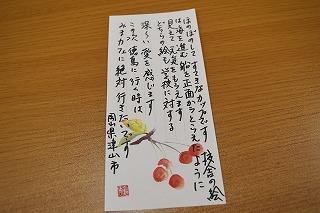 ほのぼのして すてきなカフェです 校舎の絵
は海を進む船を正面からとらえたように
見えて 元気をもらえます
どちらの絵も学校に対する
深〜い愛を感じます
この次 徳島に行く時は
みチカフェに絶対行きたいです
岡山県津山市